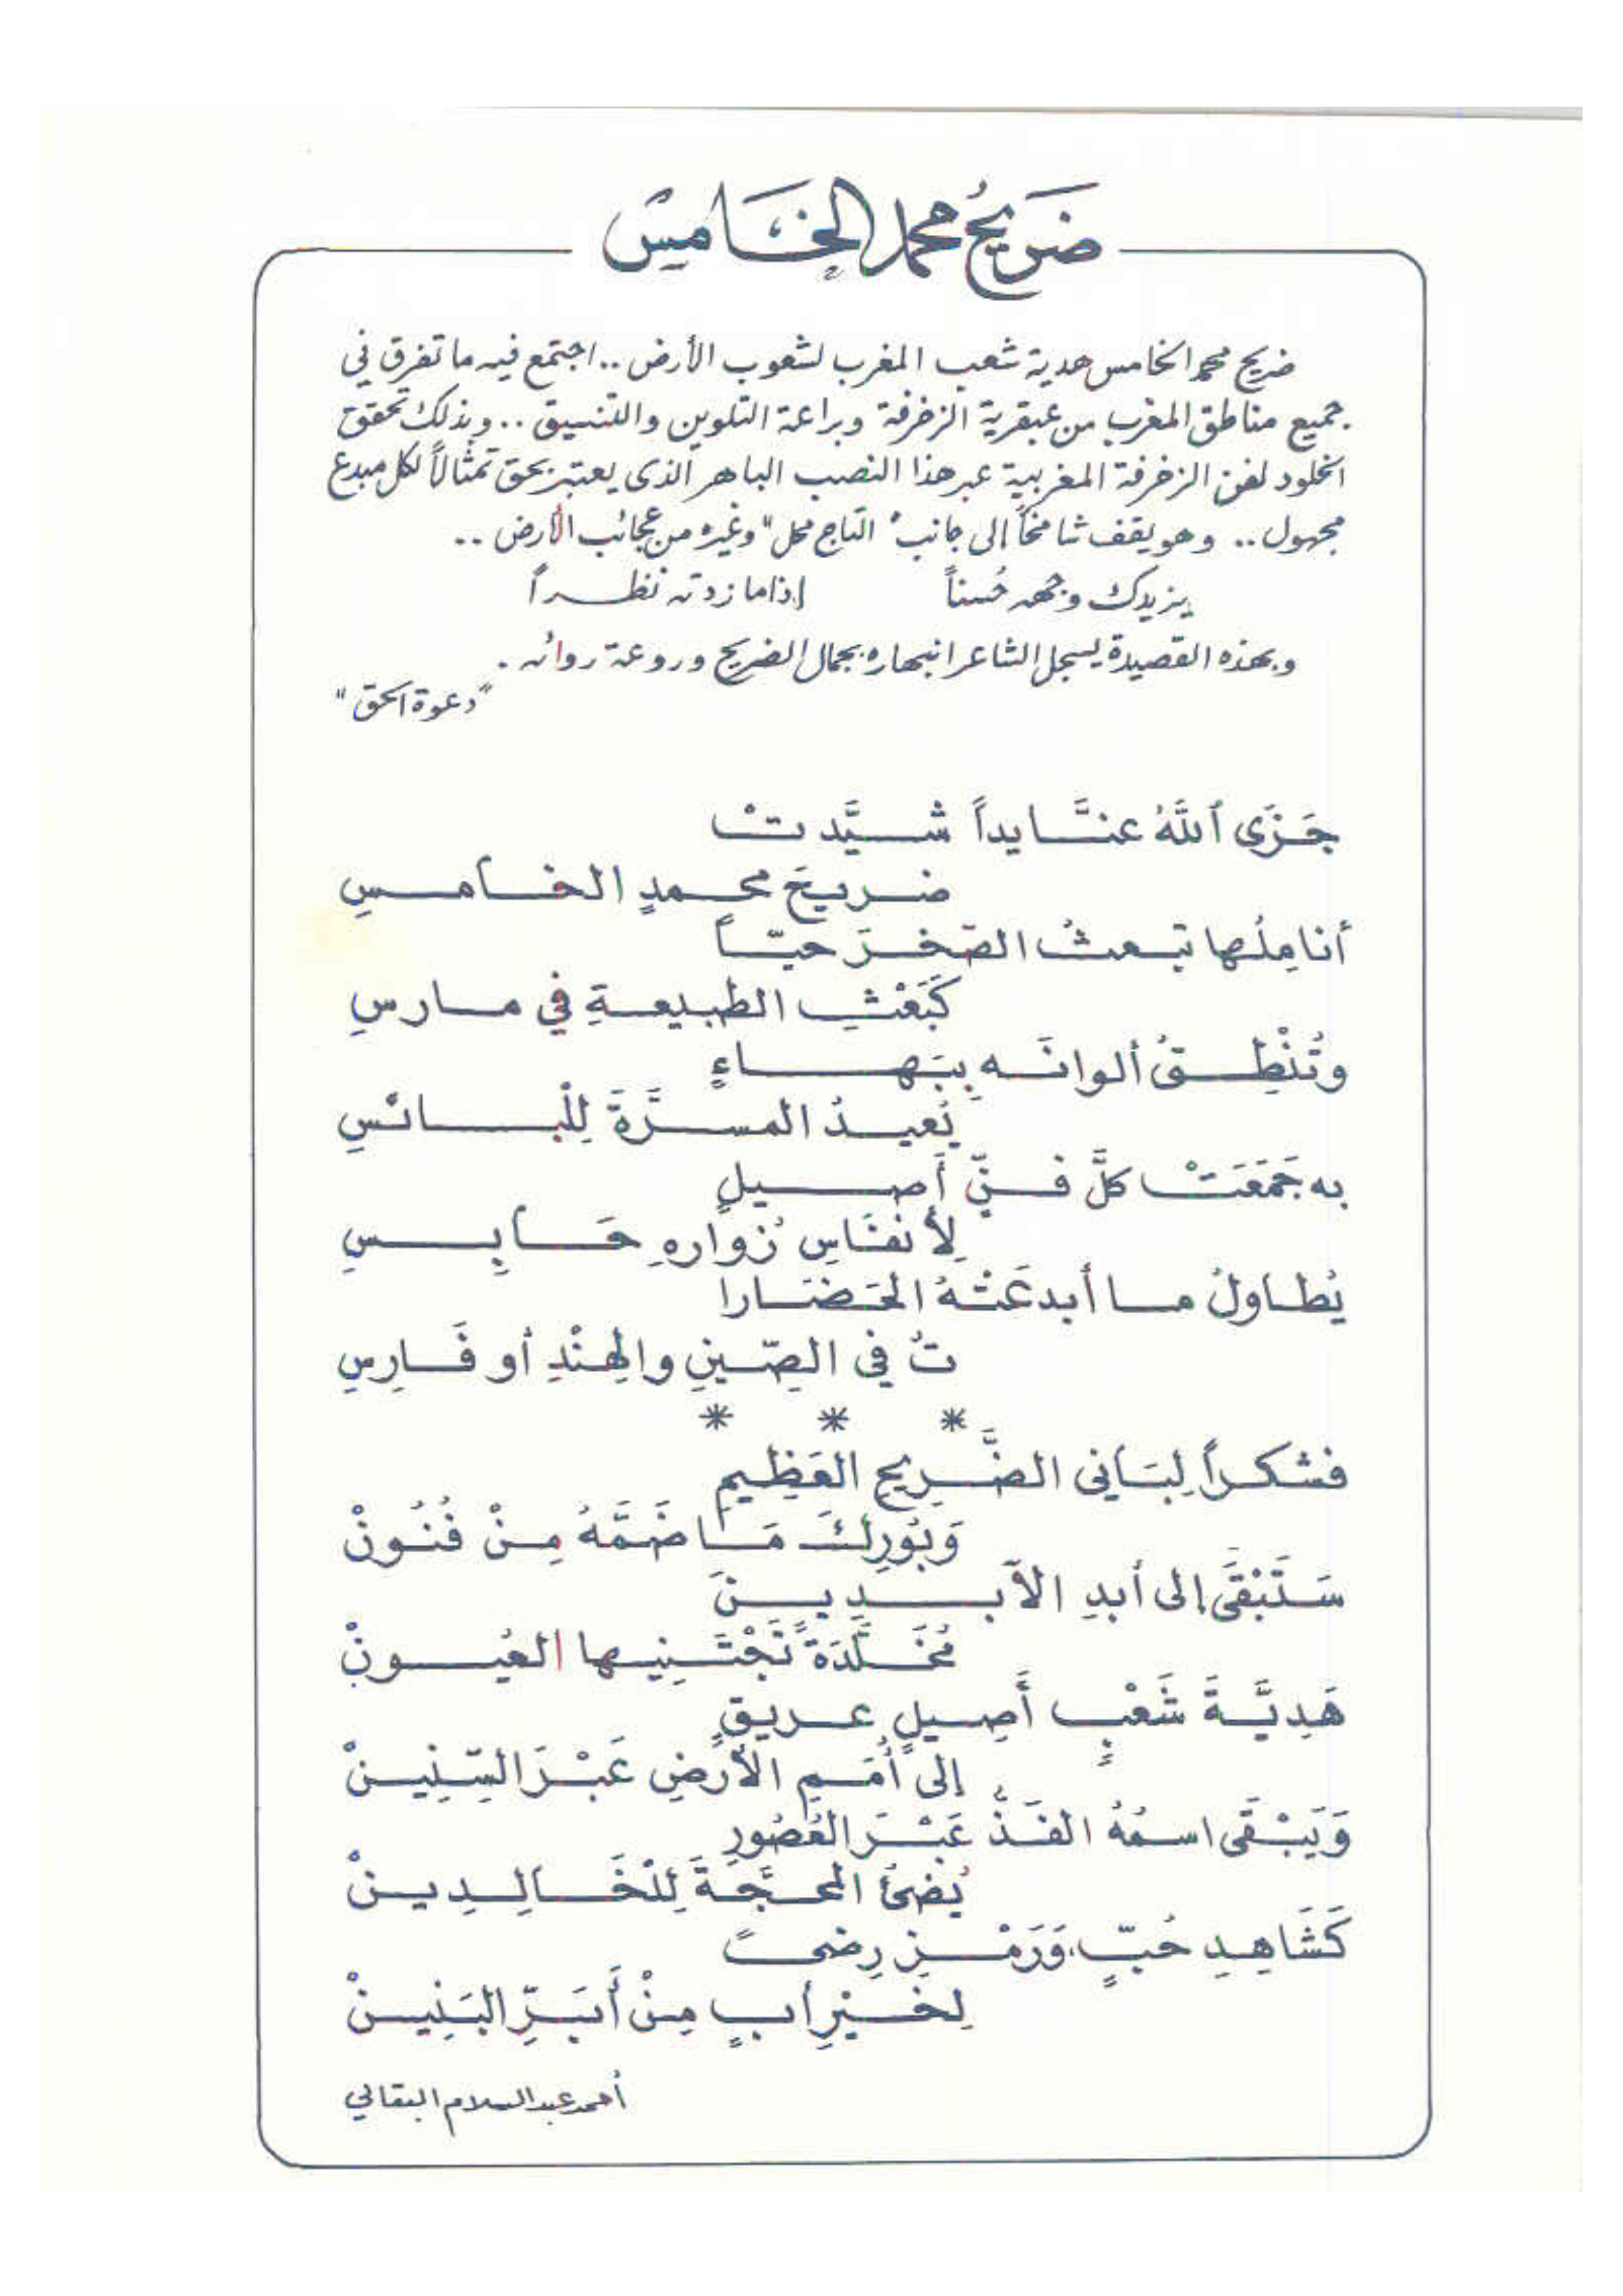 ضَرِيحُ محمد الخَامِسْ
ضريح محمد الخامس هدية شعب المغرب لشعوب الأرض .. اجتمع فيه ما تفرق في
جميع مناطق المغرب من عبقرية الزخرفة وبراعة التلوين والتنسيق .. وبذلك تحقق
الخلود لفن الزخرفة المغربية عبر هذا النصب الباهر الذي يعتبر بحق تمثالاً لكل مبدع
مجهول .. وهو يقف شامخاً إلى جانب "التاج محل" وغيره من عجائب الأرض ..
يزيدك وجهه حُسناً إذا ما زدته نظراً
وبهذه القصيدة يسجل الشاعر انبهاره بجمال الضريح وروعة روائه .
"دعوة الحق"
جَزَى ٱللَّهُ عنَّا يداً شيَّدتْ
ضريحَ محمدٍ الخامسِ
أنامِلُها تبعثُ الصّخرَ حيّاً
كَبَعْثِ الطبيعةِ في مارسِ
وتُنْطِقُ ألوانَه بِبَهاءٍ
يُعيدُ المسرَّةَ لِلْبائسِ
به جَمَعَتْ كلَّ فنٍّ أَصيلٍ
لِأنفَاسِ زُوارهِ حَابِسِ
يُطاولُ ما أبدعَتْهُ الحَضَارا
تُ في الصِّينِ والهِنْدِ أو فَارِسِ
* * *
فشكراً لِبَاني الضَّرِيحِ العَظِيمِ
وَبُورِكَ مَا ضَمَّهُ مِنْ فُنُونْ
سَتَبْقَى إلى أبدِ الآبدِينَ
مُخَلَّدَةً تَجْتَنِيها العُيونْ
هَدِيَّةَ شَعْبٍ أَصِيلٍ عريقٍ
إلى أُمَمِ الأرضِ عَبْرَ السِّنِينْ
وَيَبْقَى اسمُهُ الفَذُّ عَبْرَ العُصُورِ
يُضئُ المحَجَّةَ لِلْخَالِدِينْ
كَشَاهِدِ حُبٍّ، وَرَمْزِ رِضىً
لِخَيْرِ أبٍ مِنْ أَبَرِّ البَنِينْ
أحمد عبد السلام البقالي